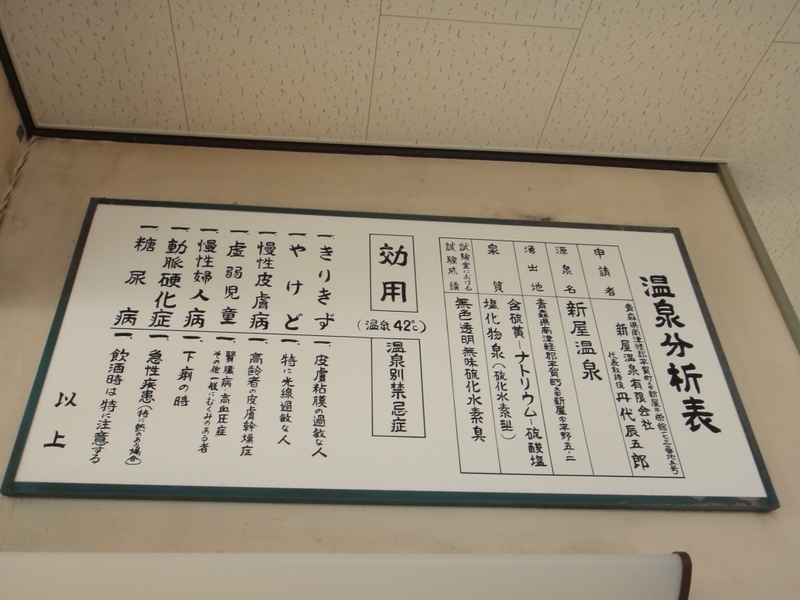 温泉分析表
申請者
青森県南津軽郡平賀町大字新屋字
新屋温泉有限会社
代表取締役 丹代辰五郎
源泉名
新屋温泉
湧出地
青森県南津軽郡平賀町大字新屋字平野
泉質
含硫黄ーナトリウムー硫酸塩
塩化物泉(硫化水素型)
試験室における
試験成績
無色透明無味硫化水素臭
効用
(温泉42℃)
一きりきず
一やけど
一慢性皮膚病
一虚弱児童
一慢性婦人病
一動脈硬化症
一糖尿病
温泉別禁忌症
一、皮膚粘膜の過敏な人
一、特に光線過敏な人
一、高齢者の皮膚乾燥症
一、腎臓病、高血圧症
その他一般にむくみのある者
一、下痢の時
一、急性疾患(特に熱のある場合)
一、飲酒時は特に注意する
以上